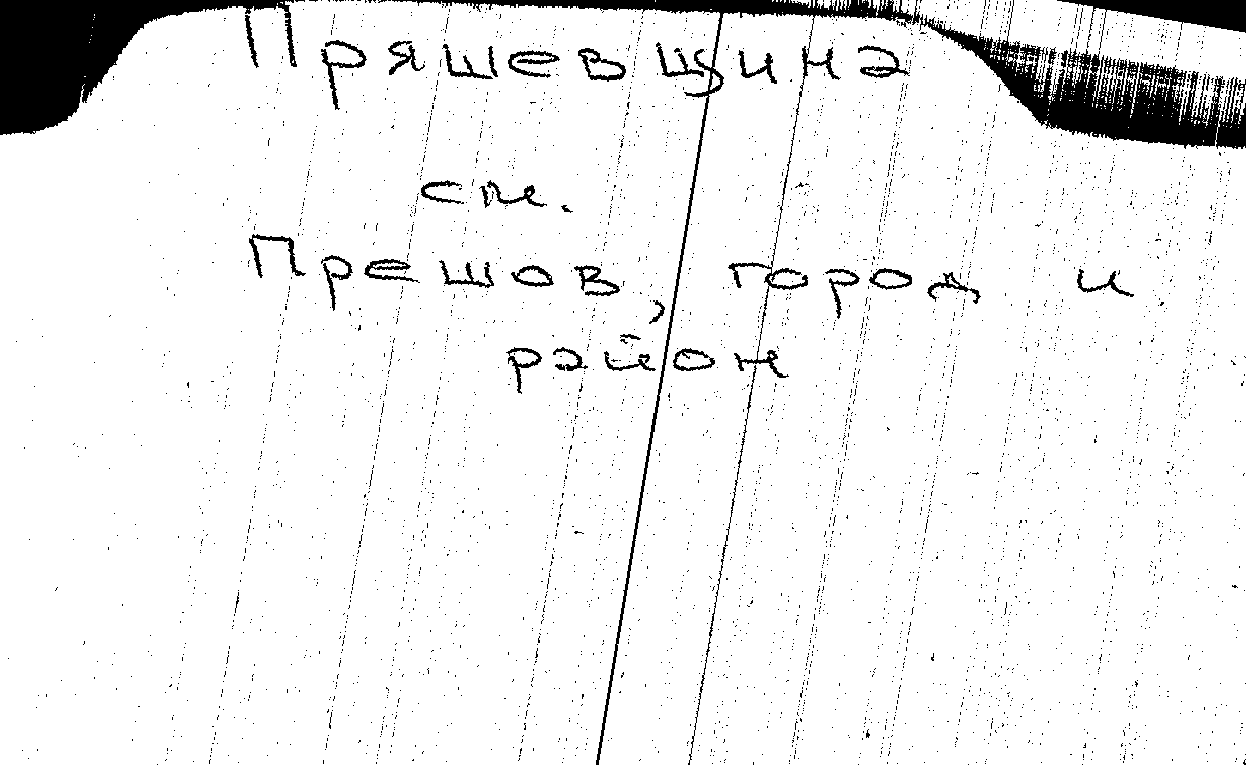 Пряшевщина
см.
Прешов, город и
район